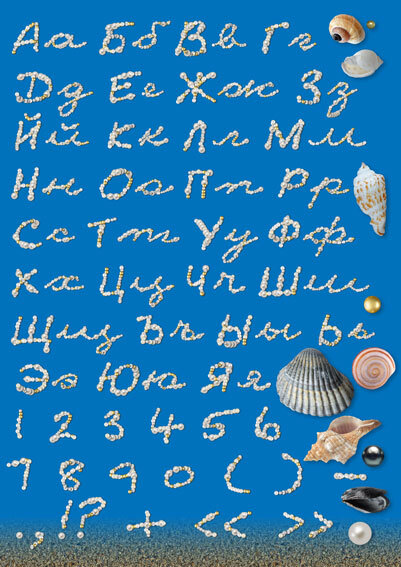 Аа Бб Вв Гг
Дд Ее Жж Зз
Йй Кк Лл Мм
Нн Оо Пп Рр
Сс Тт Уу Фф
Хх Цц Чч Шш
Щщ Ъъ Ыы Ьь
Ээ Юю Яя
1 2 3 4 5 6
7 8 9 0 ( ) –
. , !? + << >>